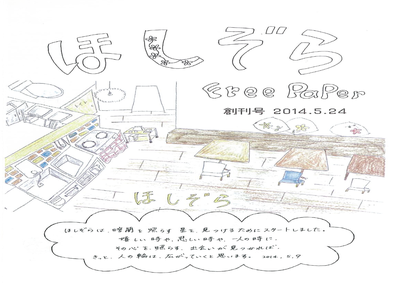 ほしぞら
Free Paper
創刊号 2014.5.24
ほしぞら
ほしぞらは、暗闇を照らす星を、見つけるためにスタートしました。
嬉しい時や、悲しい時や、一人の時に、
その心を、照らす、出会いが見つかれば、
きっと、人の輪は、広がっていくと思います。 2014.5.9